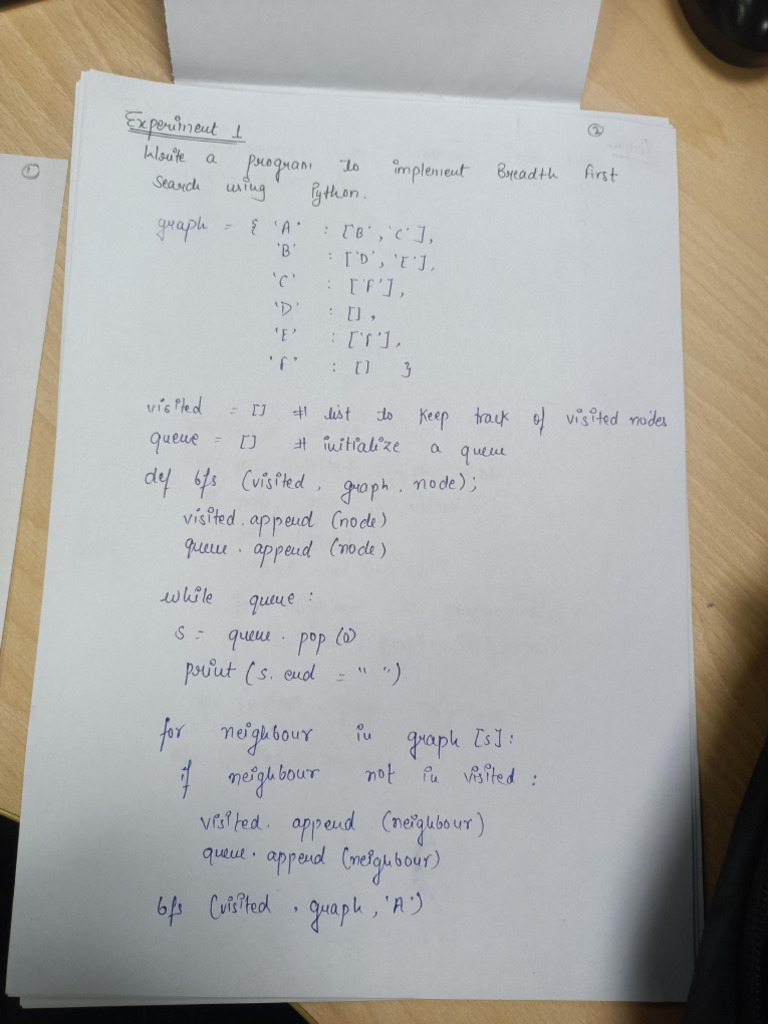 ①
②
Experiment 1
Write a program to implement Breadth first
Search using Python.
graph = { 'A' : ['B', 'C'],
'B' : ['D', 'E'],
'C' : ['F'],
'D' : [],
'E' : ['F'],
'F' : [] }
visited = [] # list to keep track of visited nodes
queue = [] # initialize a queue
def bfs (visited, graph, node);
visited.append (node)
queue.append (node)
while queue:
s = queue.pop (0)
print (s. end = " ")
for neighbour in graph [s]:
if neighbour not in visited:
visited. append (neighbour)
queue. append (neighbour)
bfs (visited, graph, 'A')